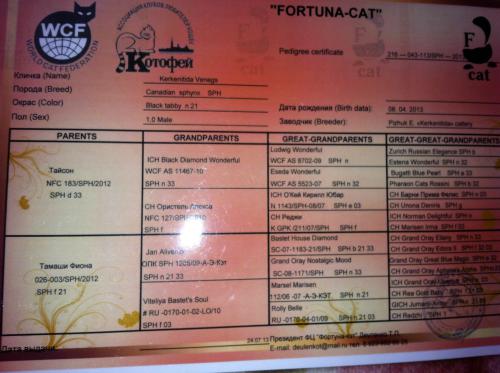 WCF
WORLD CAT FEDERATION
АССОЦИАЦИЯ КЛУБОВ ЛЮБИТЕЛЕЙ КОШЕК
Котофей
"FORTUNA-CAT"
Pedigree certificate
F
cat
216 — 043-113/SPH —
F
cat
Кличка (Name)
Kerkenitida Venegs
Порода (Breed)
Canadian sphynx SPH
Окрас (Color)
Black tabby n 21
Дата рождения (Birth data):
08. 04. 2013
Пол (Sex)
1,0 Male
Заводчик (Breeder):
Pizhuk E. «Kerkenitida» cattery
PARENTS
GRANDPARENTS
GREAT-GRANDPARENTS
GREAT-GREAT-GRANDPARENTS
Тайсон
NFC 183/SPH/2012
SPH d 33
ICH Black Diamond Wonderful
WCF AS 11467-10
SPH n 33
Ludwig Wonderful
WCF AS 8702-09 SPH n
Zurich Russian Elegance SPH b
Estena Wonderful SPH n 32
Eseda Wonderful
WCF AS 5523-07 SPH n 32
Bugatti Blue Pearl SPH a 33
Pharaon Cats Rossini SPH b
СН Ористель Алекса
NFC 127/SPH/2010
SPH f
ICH О'Кей Кирилл Юбар
N 1143/SPH-08/07 SPH e 03
СН Барни Прима Фелис SPH
CH Unona Dennis SPH g
СН Реджи
K GPK /211/07/ SPH f
CH Norman Delightful SPH n
CH Marisen Irma SPH f 03
Тамаши Фиона
026-003/SPH/2012
SPH f 21
Jan Alivenze
ОПК SPH 1205/09-А-Э-Кэт
SPH n 21 33
Bastet House Diamond
SC-07-1163-21/SPH SPH b 21 33
CH Grand Oray Eilang SPH
CH Grand Oray Extera SPH
Grand Oray Nostalgic Mood
SC-08-1171/SPH SPH n 33
Grand Oray Great Blue Magic SPH
CH Grand Oray SPH
Viteliya Bastet's Soul
# RU -0170-01-02-LO/10
SPH f 03
Marsel Marisen
112/06 -07 -А-Э-КЭТ SPH n
CH Grand Oray
CH Rea Gold Baby SPH
Rolly Belle
RU -0170-04-01/09 SPH f 03 21
GICH Jumani SPH
CH Radzhi SPH f
Дата выдачи
24.07.13
Президент ФЦ "Фортуна-кэт" Деуленко Т.П.
E-mail: deulenkot@mail.ru тел.